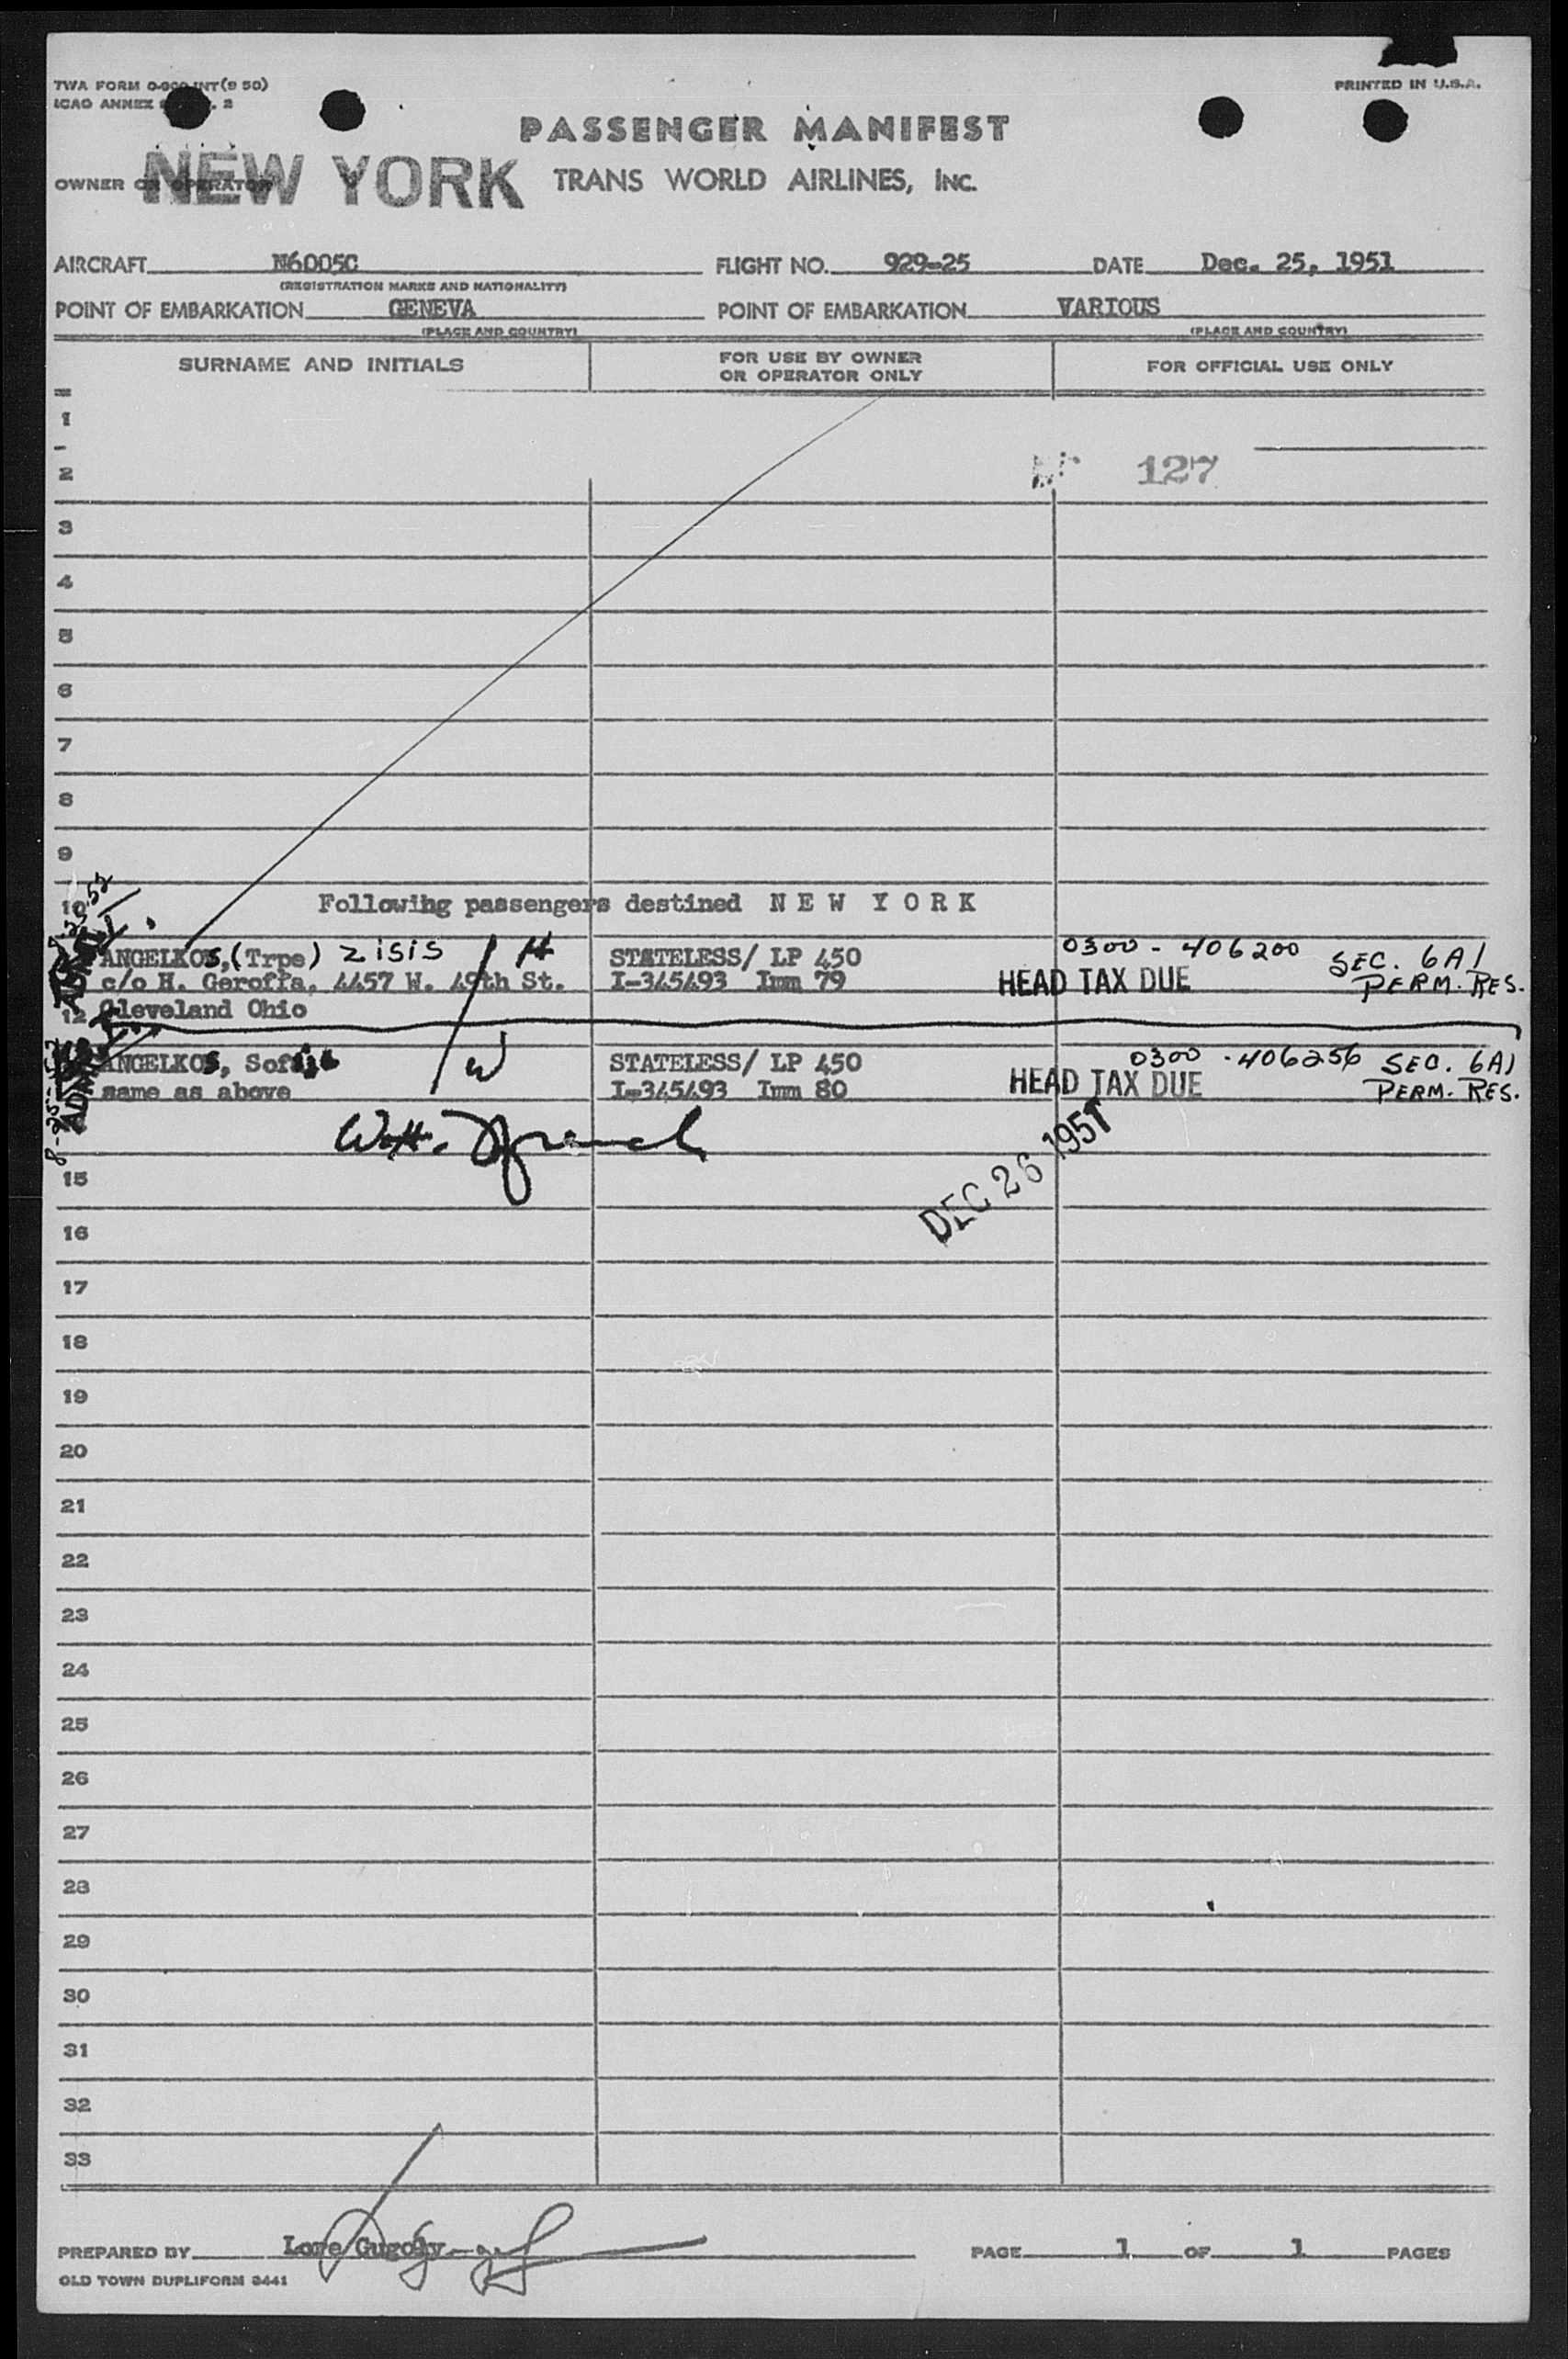 TWA FORM INT(9 50)
ICAO ANNEX 2
PRINTED IN U.S.A.
PASSENGER MANIFEST
NEW YORK
OWNER OR OPERATOR TRANS WORLD AIRLINES, INC.
AIRCRAFT N6005C FLIGHT NO. 929-25 DATE Dec. 25, 1951
(REGISTRATION MARKS AND NATIONALITY)
POINT OF EMBARKATION GENEVA POINT OF EMBARKATION VARIOUS
(PLACE AND COUNTRY) (PLACE AND COUNTRY)
SURNAME AND INITIALS FOR USE BY OWNER OR OPERATOR ONLY FOR OFFICIAL USE ONLY
1
2 127
3
4
5
6
7
8
9
10 Following passengers destined NEW YORK
ANGELKOS, (Trpe) ZISIS H STATELESS/ LP 450 0300 - 406200 SEC. 6A1
c/o H. Geroffa, 4457 W. 49th St. I-345493 Imm 79 HEAD TAX DUE PERM. RES.
12 Cleveland Ohio
ANGELKOS, W STATELESS/ LP 450 0300 - 406256 SEC. 6A1
same as above I-345493 Imm 80 HEAD TAX DUE PERM. RES.
W.H.
DEC 26 1951
15
16
17
18
19
20
21
22
23
24
25
26
27
28
29
30
31
32
33
PREPARED BY Lore Gugoly PAGE 1 OF 1 PAGES
OLD TOWN DUPLIFORM 3441